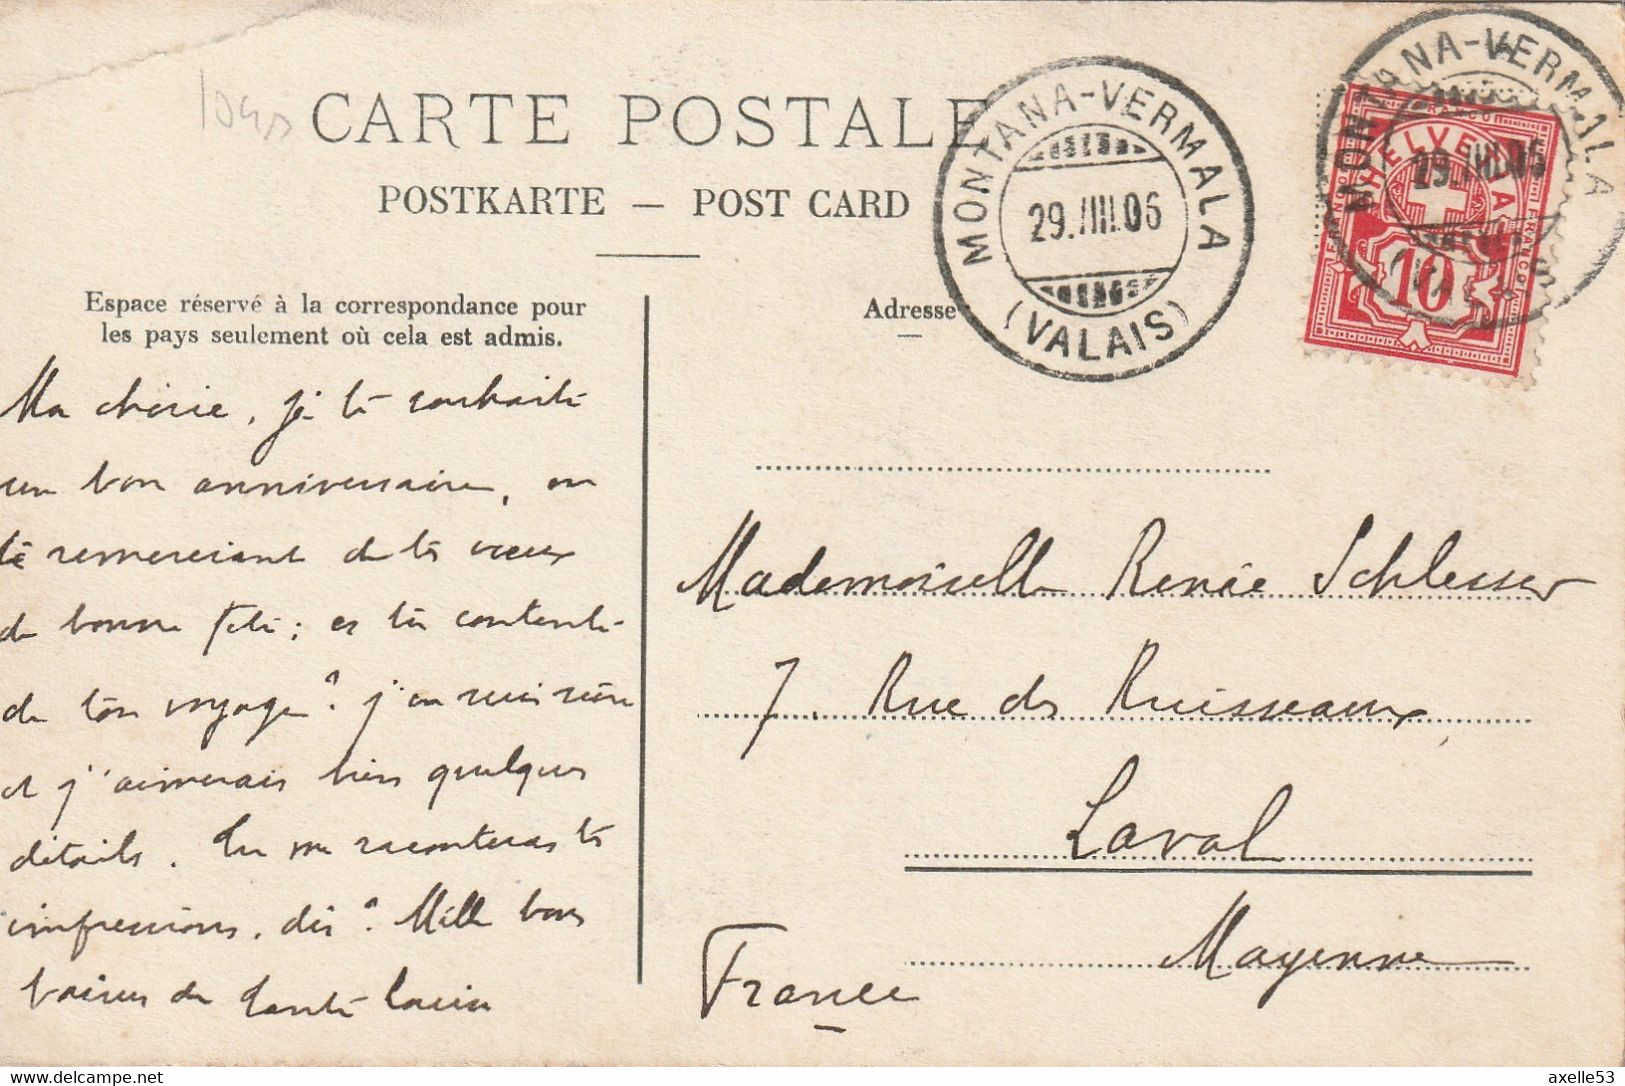 CARTE POSTALE
POSTKARTE — POST CARD
Espace réservé à la correspondance pour
les pays seulement où cela est admis.
Adresse
MONTANA-VERMALA
29.IIII.06
(VALAIS)
MONTANA-VERMALA
29.IIII.06
FRANCO
HELVETIA
10
Ma chérie, je te souhaite
un bon anniversaire, en
te remerciant de tes vœux
de bonne fête; es tu contente
de ton voyage? j'en suis sûre
et j'aimerais bien quelques
détails. Tu me raconteras tes
impressions, dis? Mille bons
baisers de tante
Mademoiselle Renée Schlesser
7. Rue des Ruisseaux
Laval
Mayenne
France
www.delcampe.net
axelle53